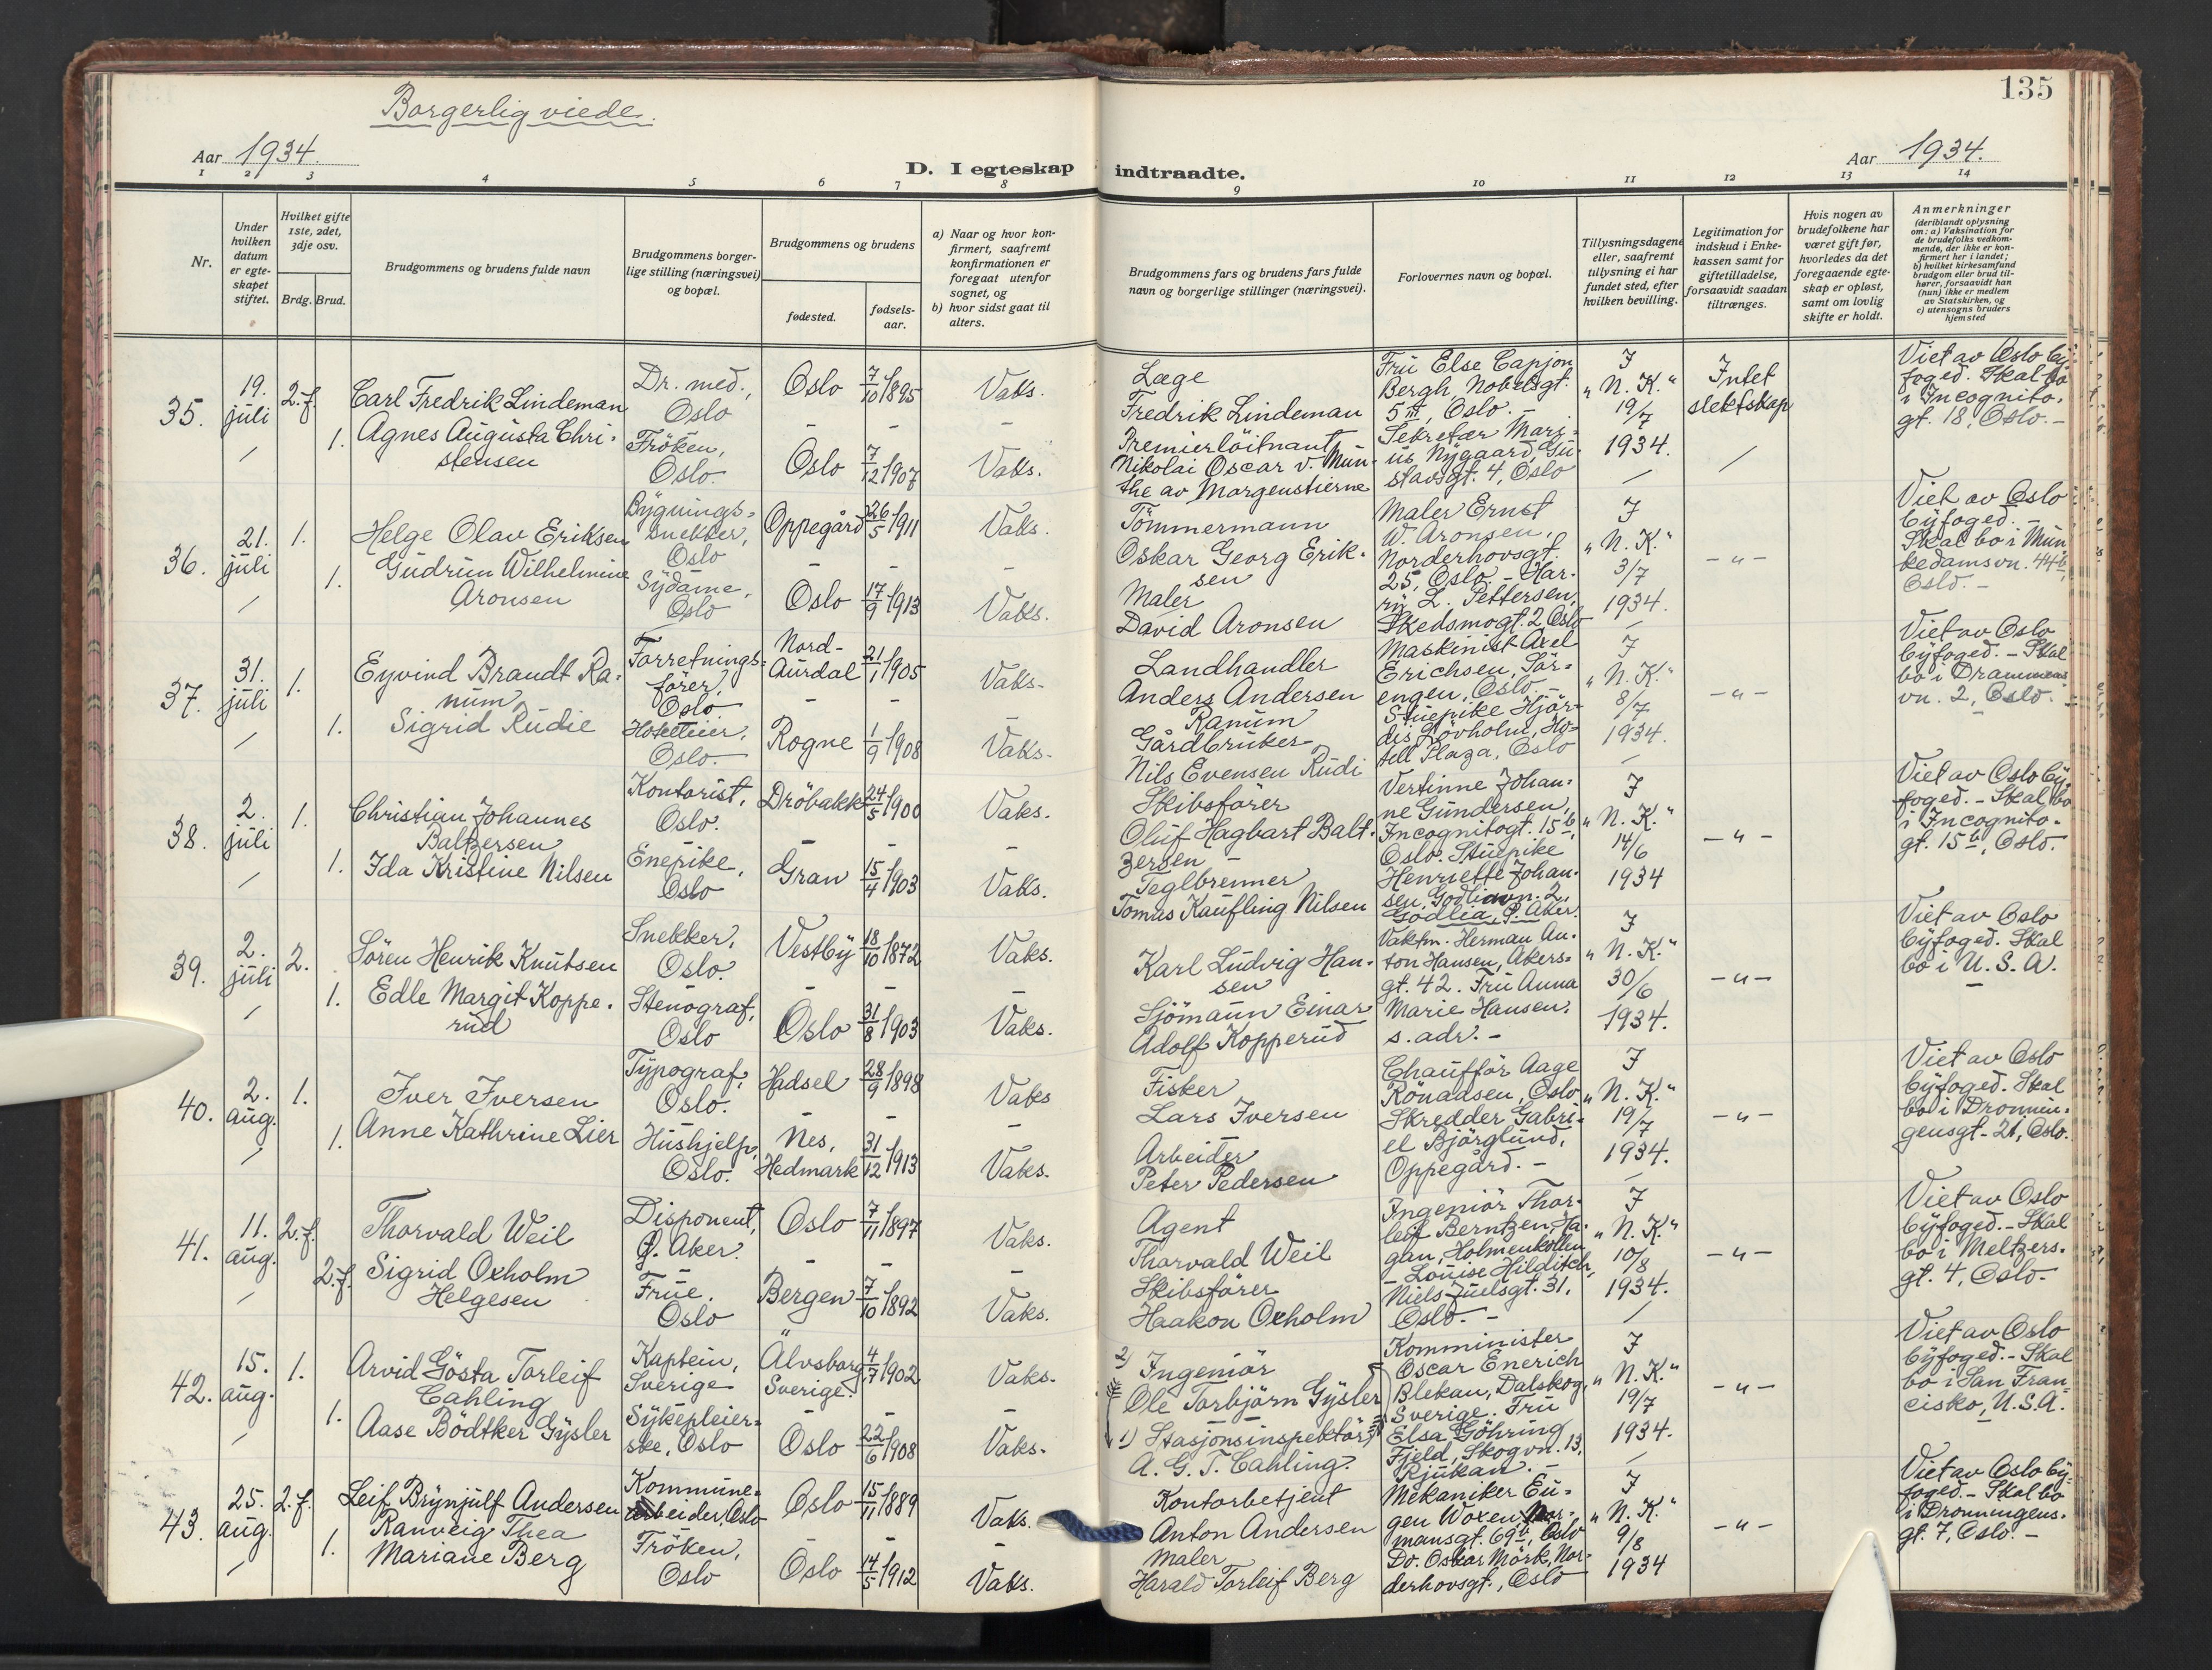 135
Borgerlig viede.
Aar 1934.
D. I egteskap indtraadte.
Aar 1934.
1 2 3 4 5 6 7 8 9 10 11 12 13 14
Nr.
Under hvilken datum er egteskapet stiftet.
Hvilket gifte 1ste, 2det, 3dje osv.
Brdg. Brud.
Brudgommens og brudens fulde navn
Brudgommens borgerlige stilling (næringsvei) og bopæl.
Brudgommens og brudens
fødested.
fødselsaar.
a) Naar og hvor konfirmert, saafremt konfirmationen er foregaat utenfor sognet, og
b) hvor sidst gaat til alters.
Brudgommens fars og brudens fars fulde navn og borgerlige stillinger (næringsvei).
Forlovernes navn og bopæl.
Tillysningsdagene eller, saafremt tillysning ei har fundet sted, efter hvilken bevilling.
Legitimation for indskud i Enkekassen samt for giftetilladelse, forsaavidt saadan tiltrænges.
Hvis nogen av brudefolkene har været gift før, hvorledes da det foregaaende egteskap er opløst, samt om lovlig skifte er holdt.
Anmerkninger
(deriblandt oplysning om: a) Vaksination for de brudefolks vedkommende, der ikke er konfirmert her i landet;
b) hvilket kirkesamfund brudgom eller brud tilhører, forsaavidt han (hun) ikke er medlem av Statskirken, og
c) utensogns bruders hjemsted
35. 19. juli 2. f.
Carl Fredrik Lindeman
Dr. med., Oslo
Oslo 7/10 1895
Vaks.
1. Agnes Augusta Christensen
Fröken, Oslo.
Oslo 7/12 1907
Vaks.
Læge
Fredrik Lindeman
Premierlöitnant
Nikolai Oscar v. Munthe av Morgenstierne
Fru Else Capjon
Bergh, Nobelsgt.
5 III, Oslo. -
Sekretær Marius Nygaard, Gustavsgt. 4, Oslo
I "N. K." 19/7 1934.
Intet slektskap
Viet av Oslo byfoged. Skal bo i Incognitogt. 18, Oslo. -
36. 21. juli 1.
Helge Olav Eriksen
Bygningssnekker, Oslo
Oppegård 26/5 1911
Vaks.
1. Gudrun Wilhelmine Aronsen
Sydame, Oslo
Oslo 17/9 1913
Vaks.
Tömmermann
Oskar Georg Eriksen
Maler
David Aronsen
Maler Ernst
W. Aronsen,
Norderhovsgt.
25, Oslo. - Harry L. Pettersen,
Skedsmogt. 2, Oslo
I "N. K." 3/7 1934.
- " -
Viet av Oslo byfoged. -
Skal bo i Munkedamsvn. 44 b, Oslo. -
37. 31. juli 1.
Eyvind Brandt Ranum
Forretningsförer, Oslo.
Nord-Aurdal 21/1 1905
Vaks.
1. Sigrid Rudie
Hotelleier, Oslo.
Rogne 1/9 1908
Vaks.
Landhandler
Anders Andersen Ranum
Gårdbruker
Nils Evensen Rudi
Maskinist Axel
Erichsen, Sörengen, Oslo.
Stuepike Hjördis Lövholm, Hotell Plaza, Oslo
I "N. K." 8/7 1934.
- " -
Viet av Oslo byfoged. - Skal bo i Drammensvn. 2, Oslo.
38. 2. juli 1.
Christian Johannes Baltzersen
Kontorist, Oslo.
Dröbakk 24/5 1900
Vaks.
1. Ida Kristine Nilsen
Enepike, Oslo
Gran 15/4 1903
Vaks.
Skibsförer
Oluf Hagbart Baltzersen -
Teglbrenner
Tomas Kaufling Nilsen
Vertinne Johanne Gundersen,
Incognitogt. 15 b,
Oslo. Stuepike
Henriette Johansen, Godliavn. 2,
Godlia, Ö. Aker.
I "N. K." 14/6 1934
- " -
Viet av Oslo byfoged. - Skal bo i Incognitogt. 15 b, Oslo.
39. 2. juli 2.
Sören Henrik Knutsen
Snekker, Oslo.
Vestby 18/10 1872
Vaks.
1. Edle Margit Kopperud
Stenograf, Oslo
Oslo 31/8 1903
Vaks.
Karl Ludvig Hansen
Sjömann Einar
Adolf Kopperud
Vaktm. Herman Anton Hansen, Akersgt. 42. Fru Anna
Marie Hansen,
s. adr. -
I "N. K." 30/6 1934.
- " -
Viet av Oslo byfoged. Skal bo i U. S. A.
40. 2. aug. 1.
Iver Iversen
Typograf, Oslo.
Hadsel 28/9 1898
Vaks
1. Anne Kathrine Lier
Hushjelp, Oslo.
Nes, Hedmark 31/12 1913
Vaks.
Fisker
Lars Iversen
Arbeider
Peter Pedersen
Chaufför Aage
Rönadsen, Oslo
Skredder Gabriel Björglund,
Oppegård. -
I "N. K." 19/7 1934.
- " -
Viet av Oslo byfoged. Skal bo i Dronningensgt. 21, Oslo.
41. 11. aug. 2. f.
Thorvald Weil
Disponent, Ö. Aker.
Oslo 7/11 1897
Vaks.
2. f. Sigrid Oxholm Helgesen
Frue, Oslo
Bergen 7/10 1892
Vaks.
Agent
Thorvald Weil
Skibsförer
Haakon Oxholm
Ingeniör Thorleif Berntzen, Hagan, Holmenkollen
- Louise Hilditch,
Niels Juelsgt. 31,
Oslo. -
I "N. K." 10/8 1934.
- " -
Viet av Oslo byfoged. - Skal bo i Meltzersgt. 4, Oslo.
42. 15. aug. 1.
Arvid Gösta Torleif Cahling
Kaptein, Sverige
Älvsborg, Sverige. 4/7 1902
Vaks.
1. Aase Bödtker Gysler
Sykepleierske, Oslo
Oslo 22/6 1908
Vaks.
2) Ingeniör
Ole Torbjörn Gysler
1) Stasjonsinspektör
A. G. T. Cahling.
Komminister
Oscar Enerich
Blekan, Dalskog,
Sverige. Fru
Elsa Göhring
Fjeld, Skogvn. 13,
Rjukan. -
I "N. K." 19/7 1934.
- " -
Viet av Oslo byfoged. - Skal bo i San Francisko, U.S.A.
43. 25. aug. 2. f.
Leif Brynjulf Andersen
Kommunearbeider, Oslo
Oslo 15/11 1889
Vaks.
1. Ranveig Thea Mariane Berg
Fröken, Oslo
Oslo 14/5 1912
Vaks.
Kontorbetjent
Anton Andersen
Maler
Harald Torleif Berg
Mekaniker Eugen Woxen, Normansgt. 69 b, Oslo
Do. Oskar Mörk, Norderhovsgt., Oslo
I "N. K." 9/8 1934
- " -
Viet av Oslo byfoged. - Skal bo i Dronningensgt. 7, Oslo. -